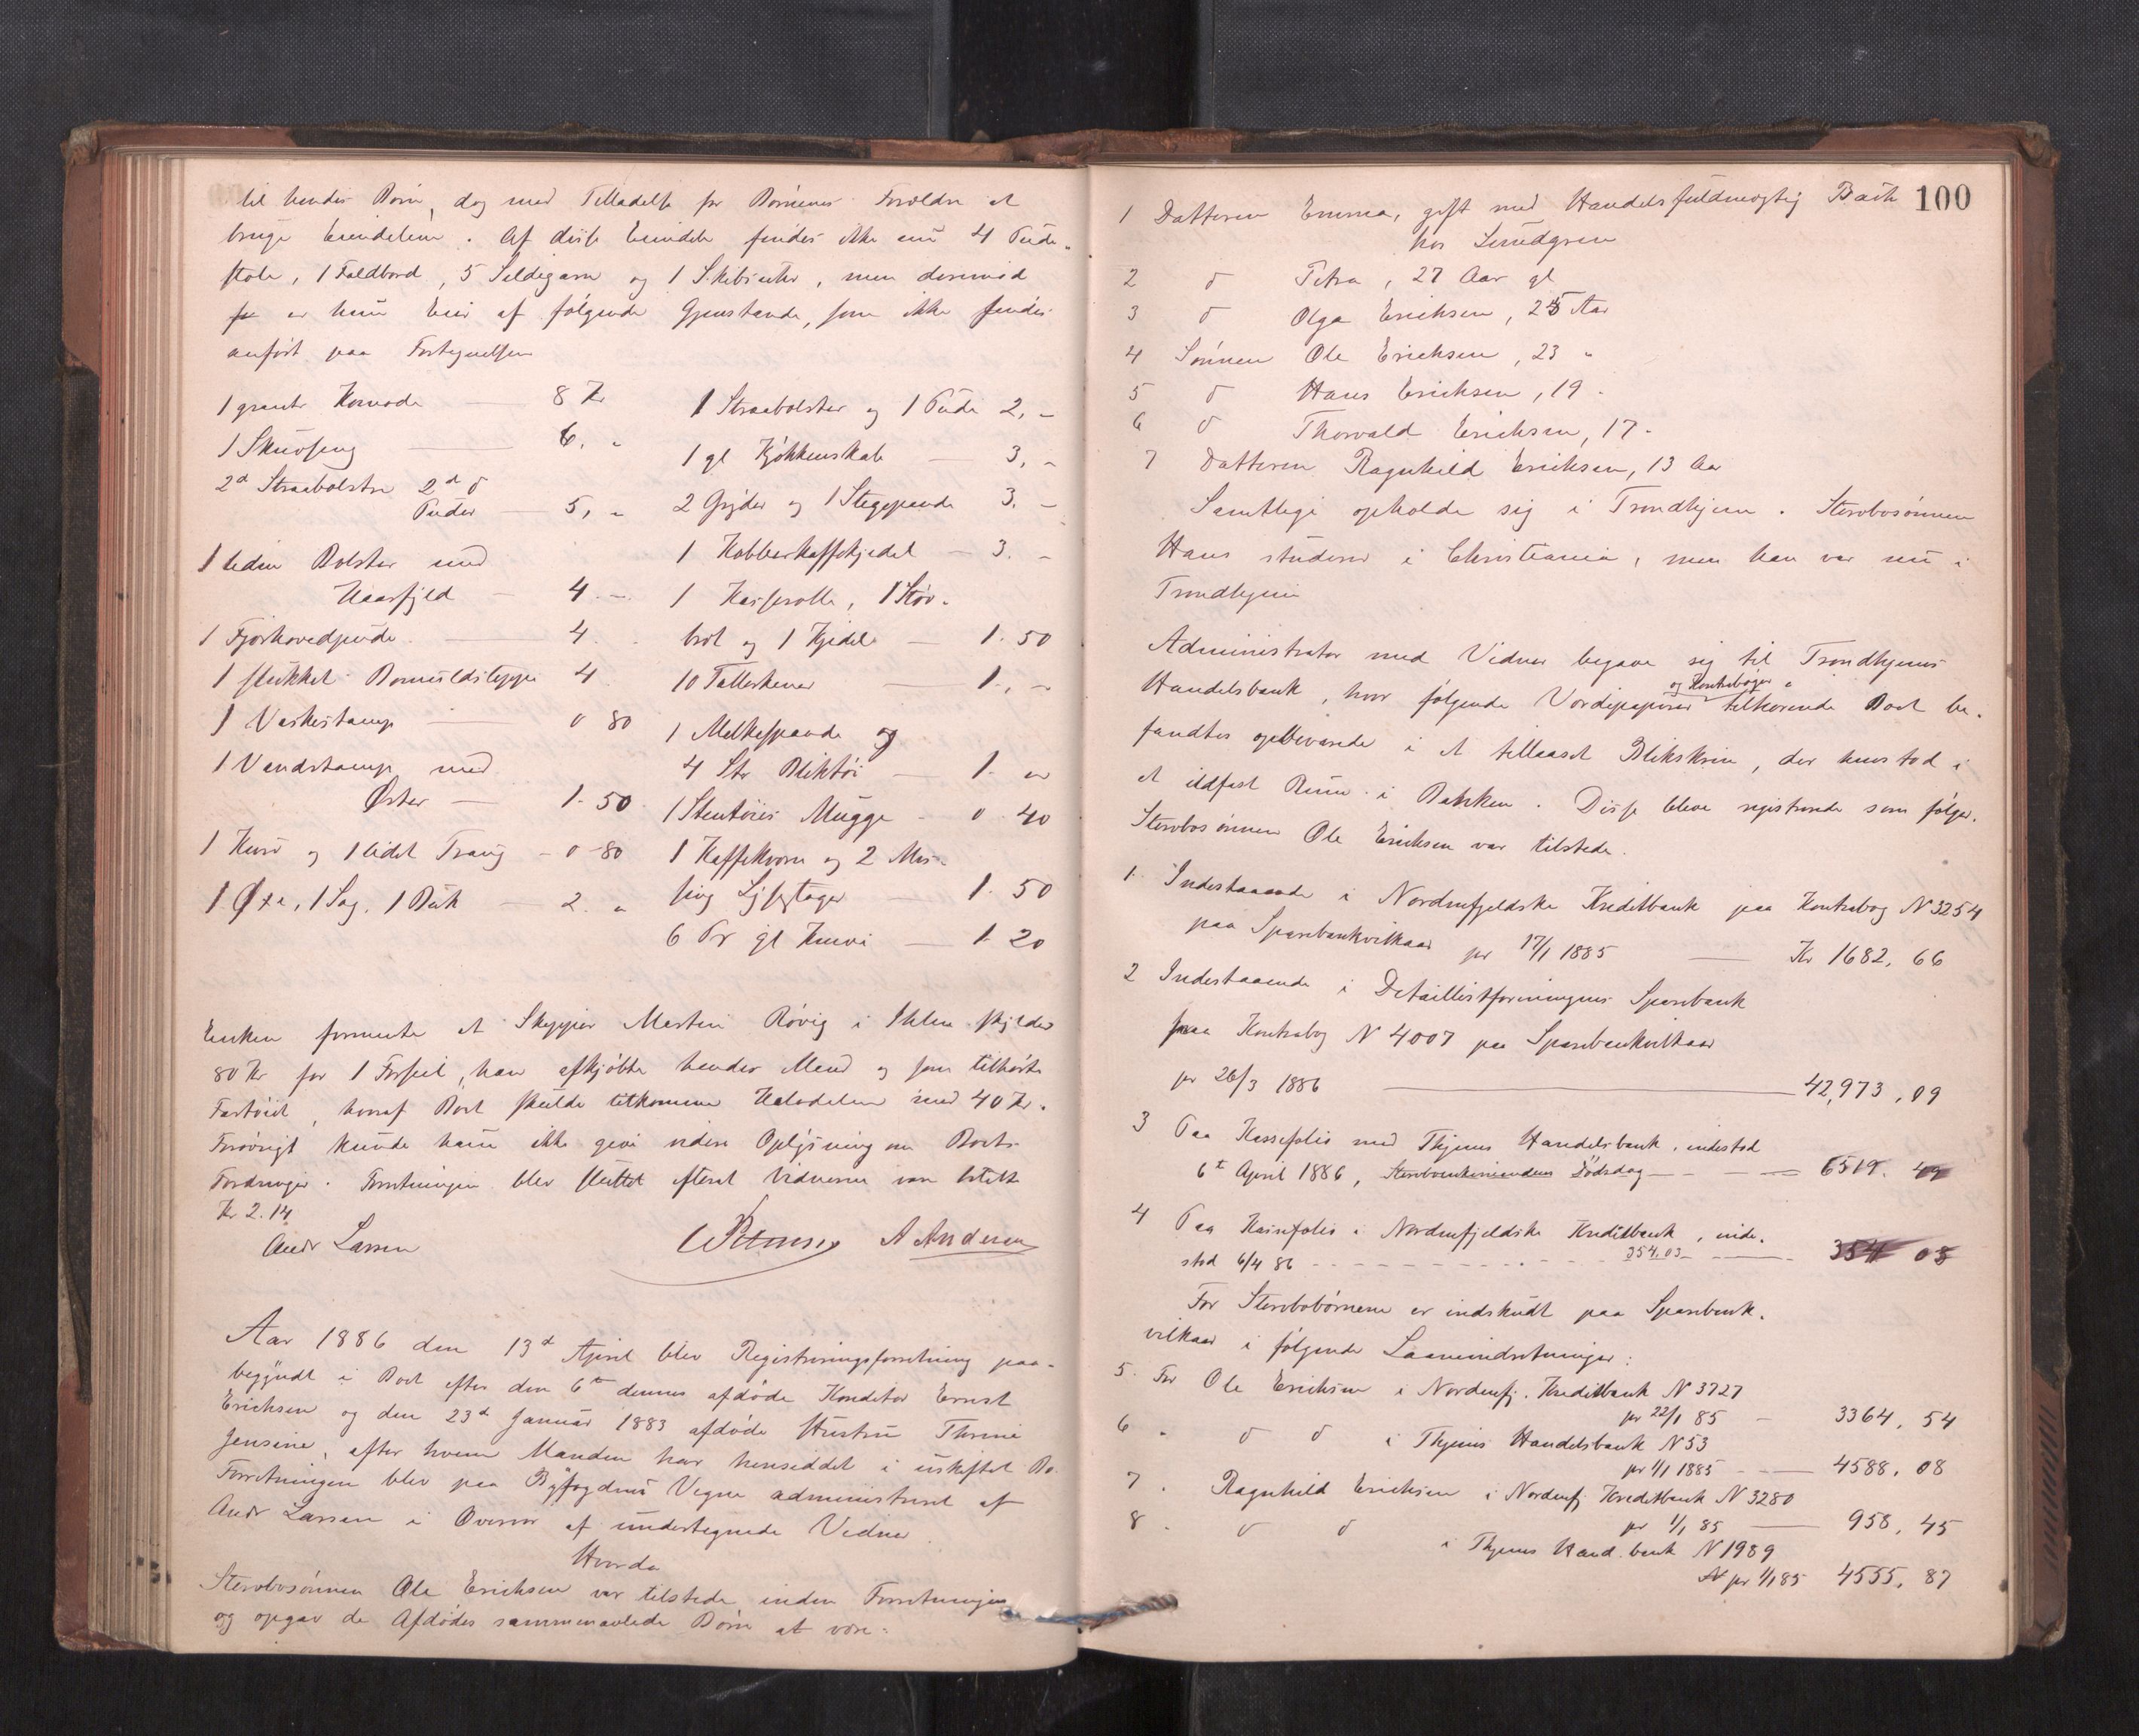 til hendes Børn, dog med Tilladelse for Børnenes Forældre at
bruge Eiendelene. Af disse Eiendele findes ikke nu 4 Pinde-
stole, 1 Foldbord, 5 Sildegarn og 1 Skibskiste, men derimod
er hun Eier af følgende Gjenstande, som ikke findes
anført paa Fortegnelsen
1 Komode — 8 Kr
1 Skuvseng — 6. "
2de Straabolstre 2de do
Puder — 5, "
1 liden Bolster med
Haarfyld — 4 . —
1 Fjærhovedpude — 4 .
1 stukket Bomuldsteppe 4
1 Vaskestamp — 0 80
1 Vandstamp med
Øster — 1. 50
1 Kurv og 1 lidet Traug — 0 - 80
1 Øxe, 1 Sag, 1 Bøtte — 2. "
1 Straabolster og 1 Pude 2, —
1 gl Kjøkkenskab — 3, —
2 Gryder og 1 Stegepande 3. —
1 Kobberkaffekjedel — 3. —
1 Kasserolle, 1 Støv-
bret og 1 Kjedel — 1. 50
10 Tallerkener — 1., —
1 Melkespande og
4 Str Bliktøi — 1. "
1 Stentøies Mugge — 0 40
1 Kaffekvern og 2 Mes-
sing Lysestager — 1. 50
6 Par gl Knive — 1. 20
Enken formente at Skipper Martin Røvig i Ihlen skylder
80 Kr for 1 Forseil, han afkjøbte hendes Mand og som tilhørte
Fartøiet, hvoraf Boet skulde tilkomme Halvdelen med 40 Kr.
Forøvrigt kunde hun ikke give videre Oplysning om Boets
Fordringer. Forretningen blev sluttet efterat Vidnerne var betalt
Kr 2.14
Andr Larsen A Andersen
Aar 1886 den 13de April blev Registreringsforretning paa-
begyndt i Boet efter den 6te dennes afdøde Konditor Ernst
Erichsen og den 23de Januar 1883 afdøde Hustru Thrine
Jensine, efter hvem Manden har hensiddet i uskiftet Bo.
Forretningen blev paa Byfogdens Vegne administreret af
Andr Larsen i Overvær af undertegnede Vidner
Hvorda
Stervbosønnen Ole Erichsen var tilstede under Forretningen
og opgav de Afdødes sammenavlede Børn at være:
100
1 Datteren Emma, gift med Handelsfuldmægtig Bach
hos Lundgren
2 do Petra, 27 Aar gl
3 do Olga Erichsen, 25 Aar
4 Sønnen Ole Erichsen, 23 "
5 do Hans Erichsen, 19 -
6 do Thorvald Erichsen, 17 -
7 Datteren Ragnhild Erichsen, 13 Aar
Samtlige opholde sig i Trondhjem. Stervbosønnen
Hans studerer i Christiania, men han var nu i
Trondhjem
Administrator med Vidner begave sig til Trondhjems
og Kontrabøger
Handelsbank, hvor følgende Værdipapirer tilhørende Boet be-
fandtes opbevarede i et tillaaset Blikskrin, der henstod i
et ildfast Rum i Banken. Disse bleve registrerede som følger.
Stervbosønnen Ole Erichsen var tilstede.
1. Indestaaende i Nordenfjeldske Kreditbank paa Kontrabog N 3254
paa Sparebankvilkaar pr 17/1 1885 — Kr 1682, 66
2 Indestaaende i Detaillistforeningens Sparebank
paa Kontrabog N 4007 paa Sparebankvilkaar
pr 26/3 1886 — 42,973, 09
3 Paa Kassefolio med Thjems Handelsbank, indestod
6te April 1886, Stervboenkemandens Dødsdag — 6519.
4 Paa Kassefolio i Nordenfjeldske Kreditbank, inde-
stod 6/4 86 — 354.03 — 354 03
For Stervbobørnene er indskudt paa Sparebank-
vilkaar i følgende Laaneindretninger:
5. For Ole Erichsen i Nordenfj. Kreditbank N 3727
pr 22/1 85 — 3364, 54
6 " do do i Thjems Handelsbank N 53
pr 1/1 1885 — 4588, 08
7. Ragnhild Erichsen i Nordenfj Kreditbank N 3280
pr 1/1 85 — 958, 45
8 . do do i Thjems Hand. bank N 1989
pr 1/1 85 4555, 87